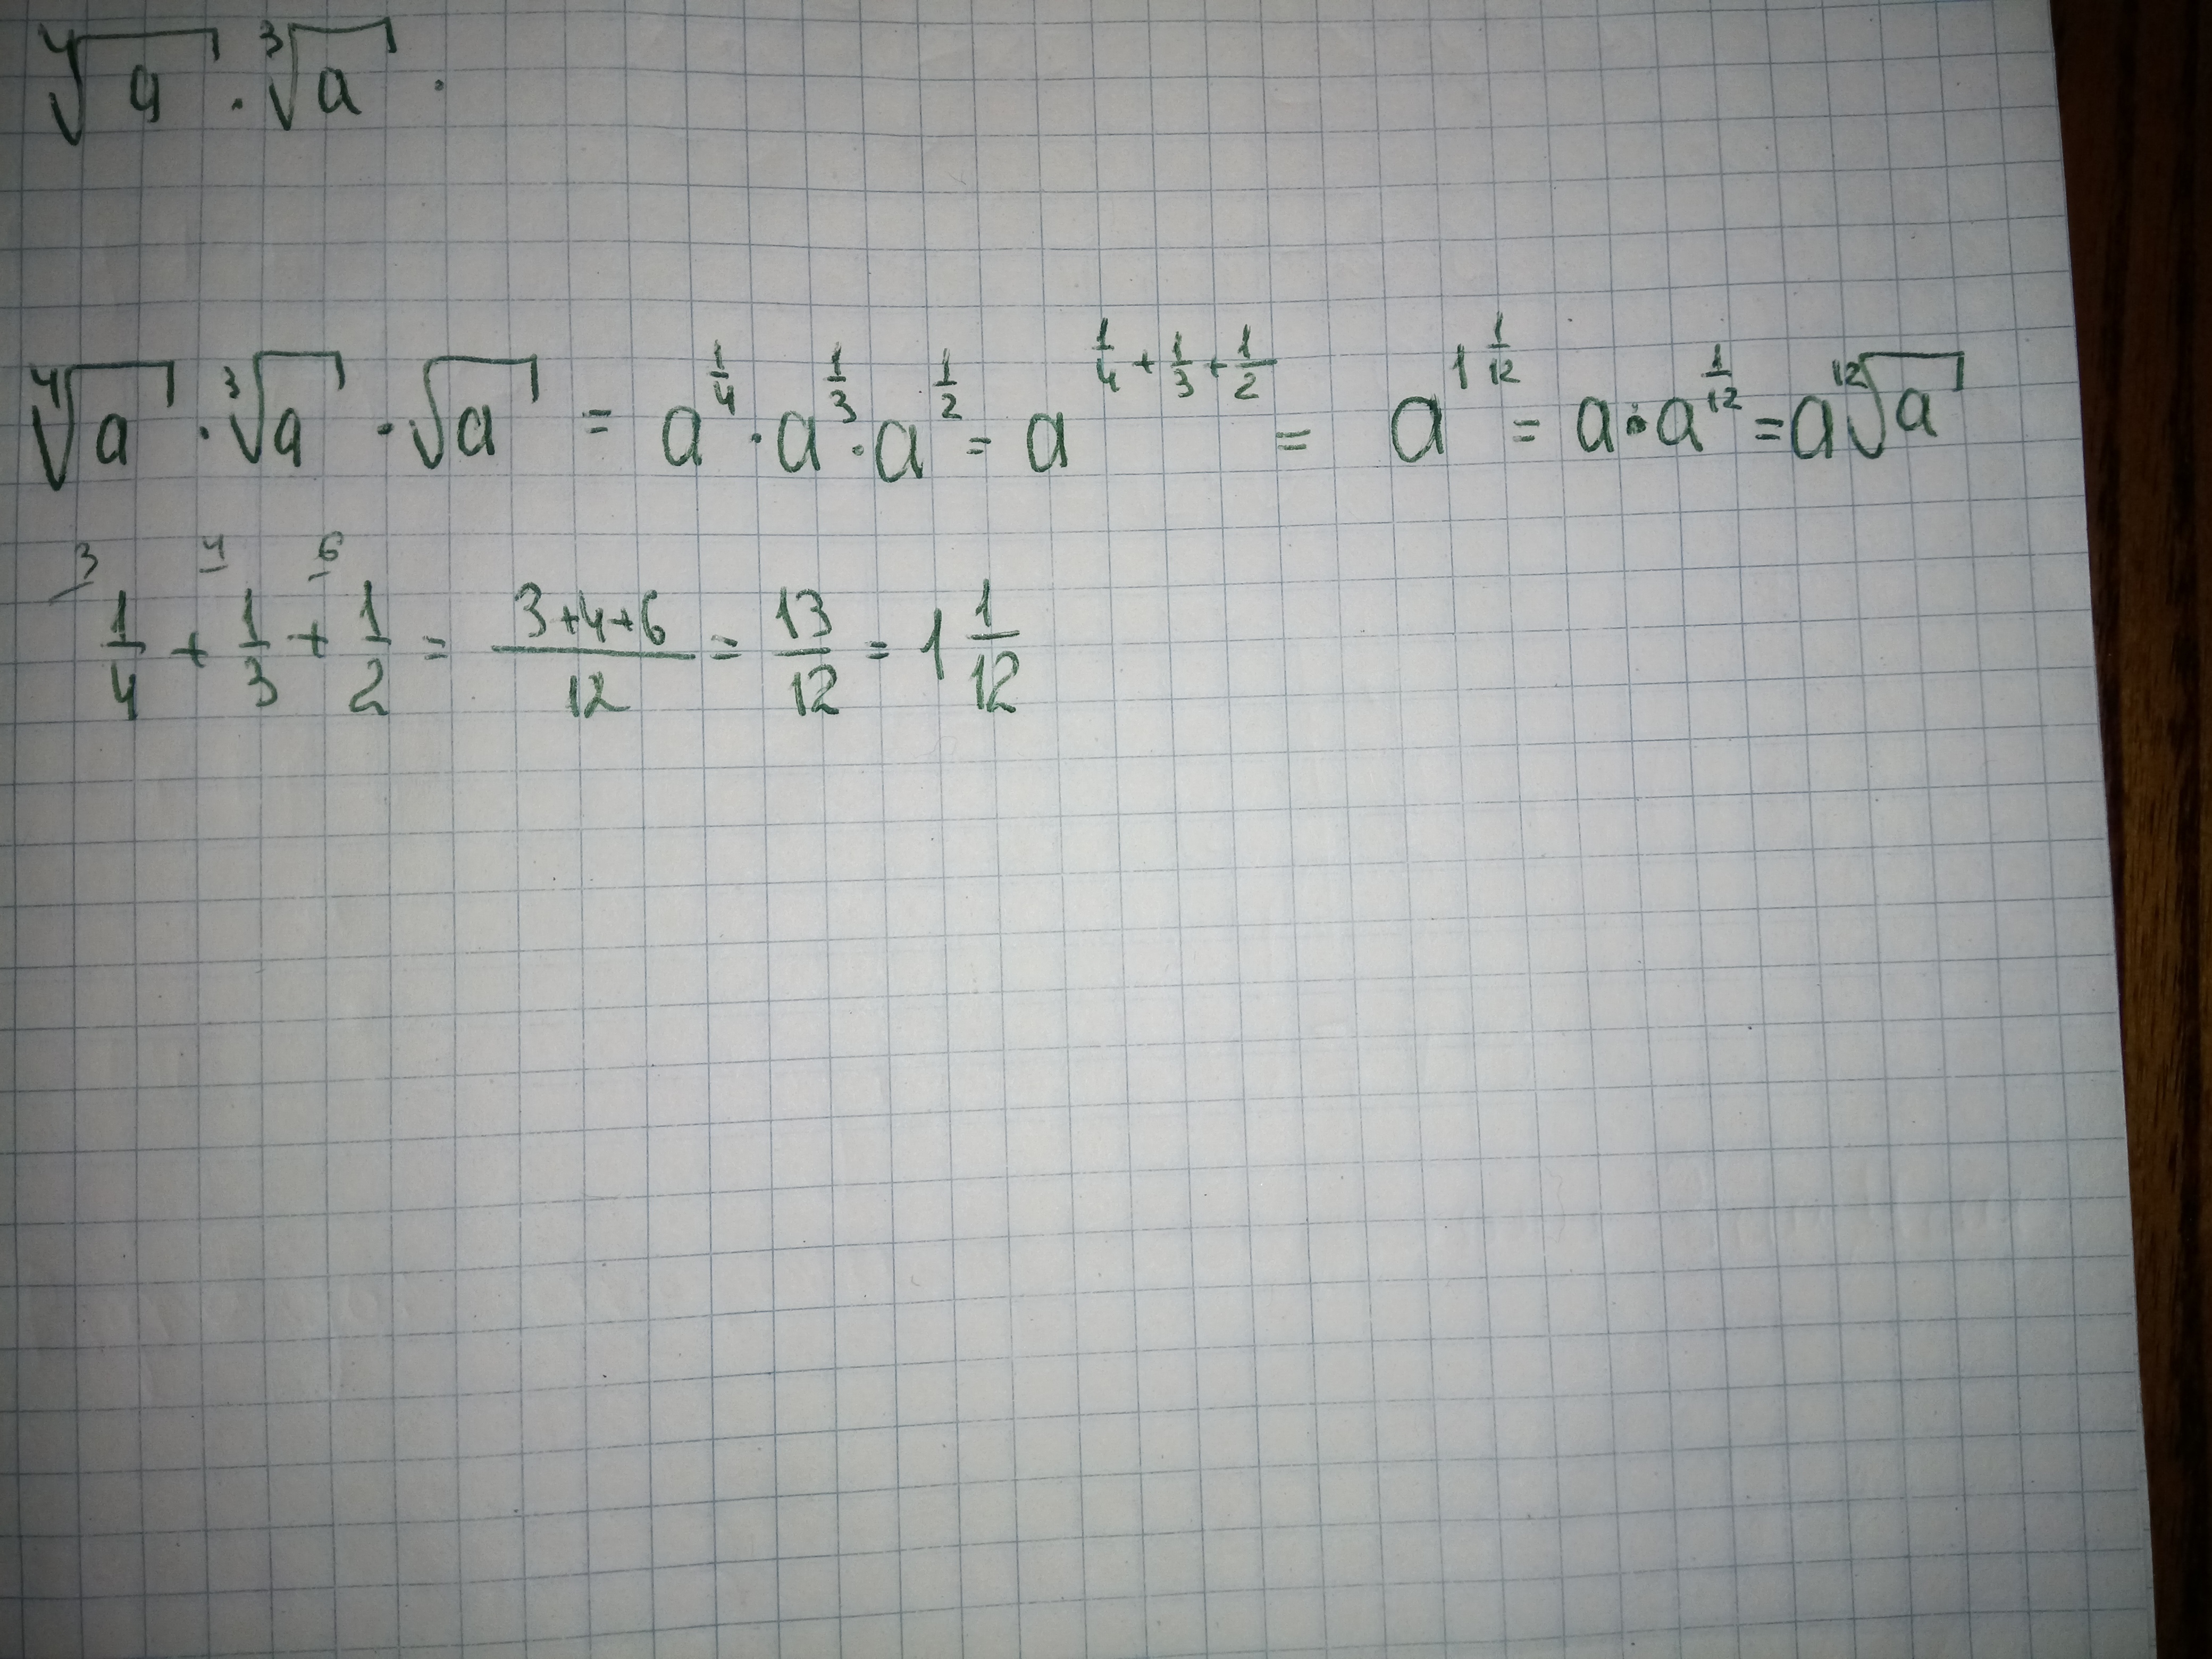 ⁴√a · ³√a ·
⁴√a · ³√a · √a = a^(1/4) · a^(1/3) · a^(1/2) = a^(1/4 + 1/3 + 1/2) = a^(1 1/12) = a · a^(1/12) = a ¹²√a
3 4 6
1/4 + 1/3 + 1/2 = (3+4+6)/12 = 13/12 = 1 1/12